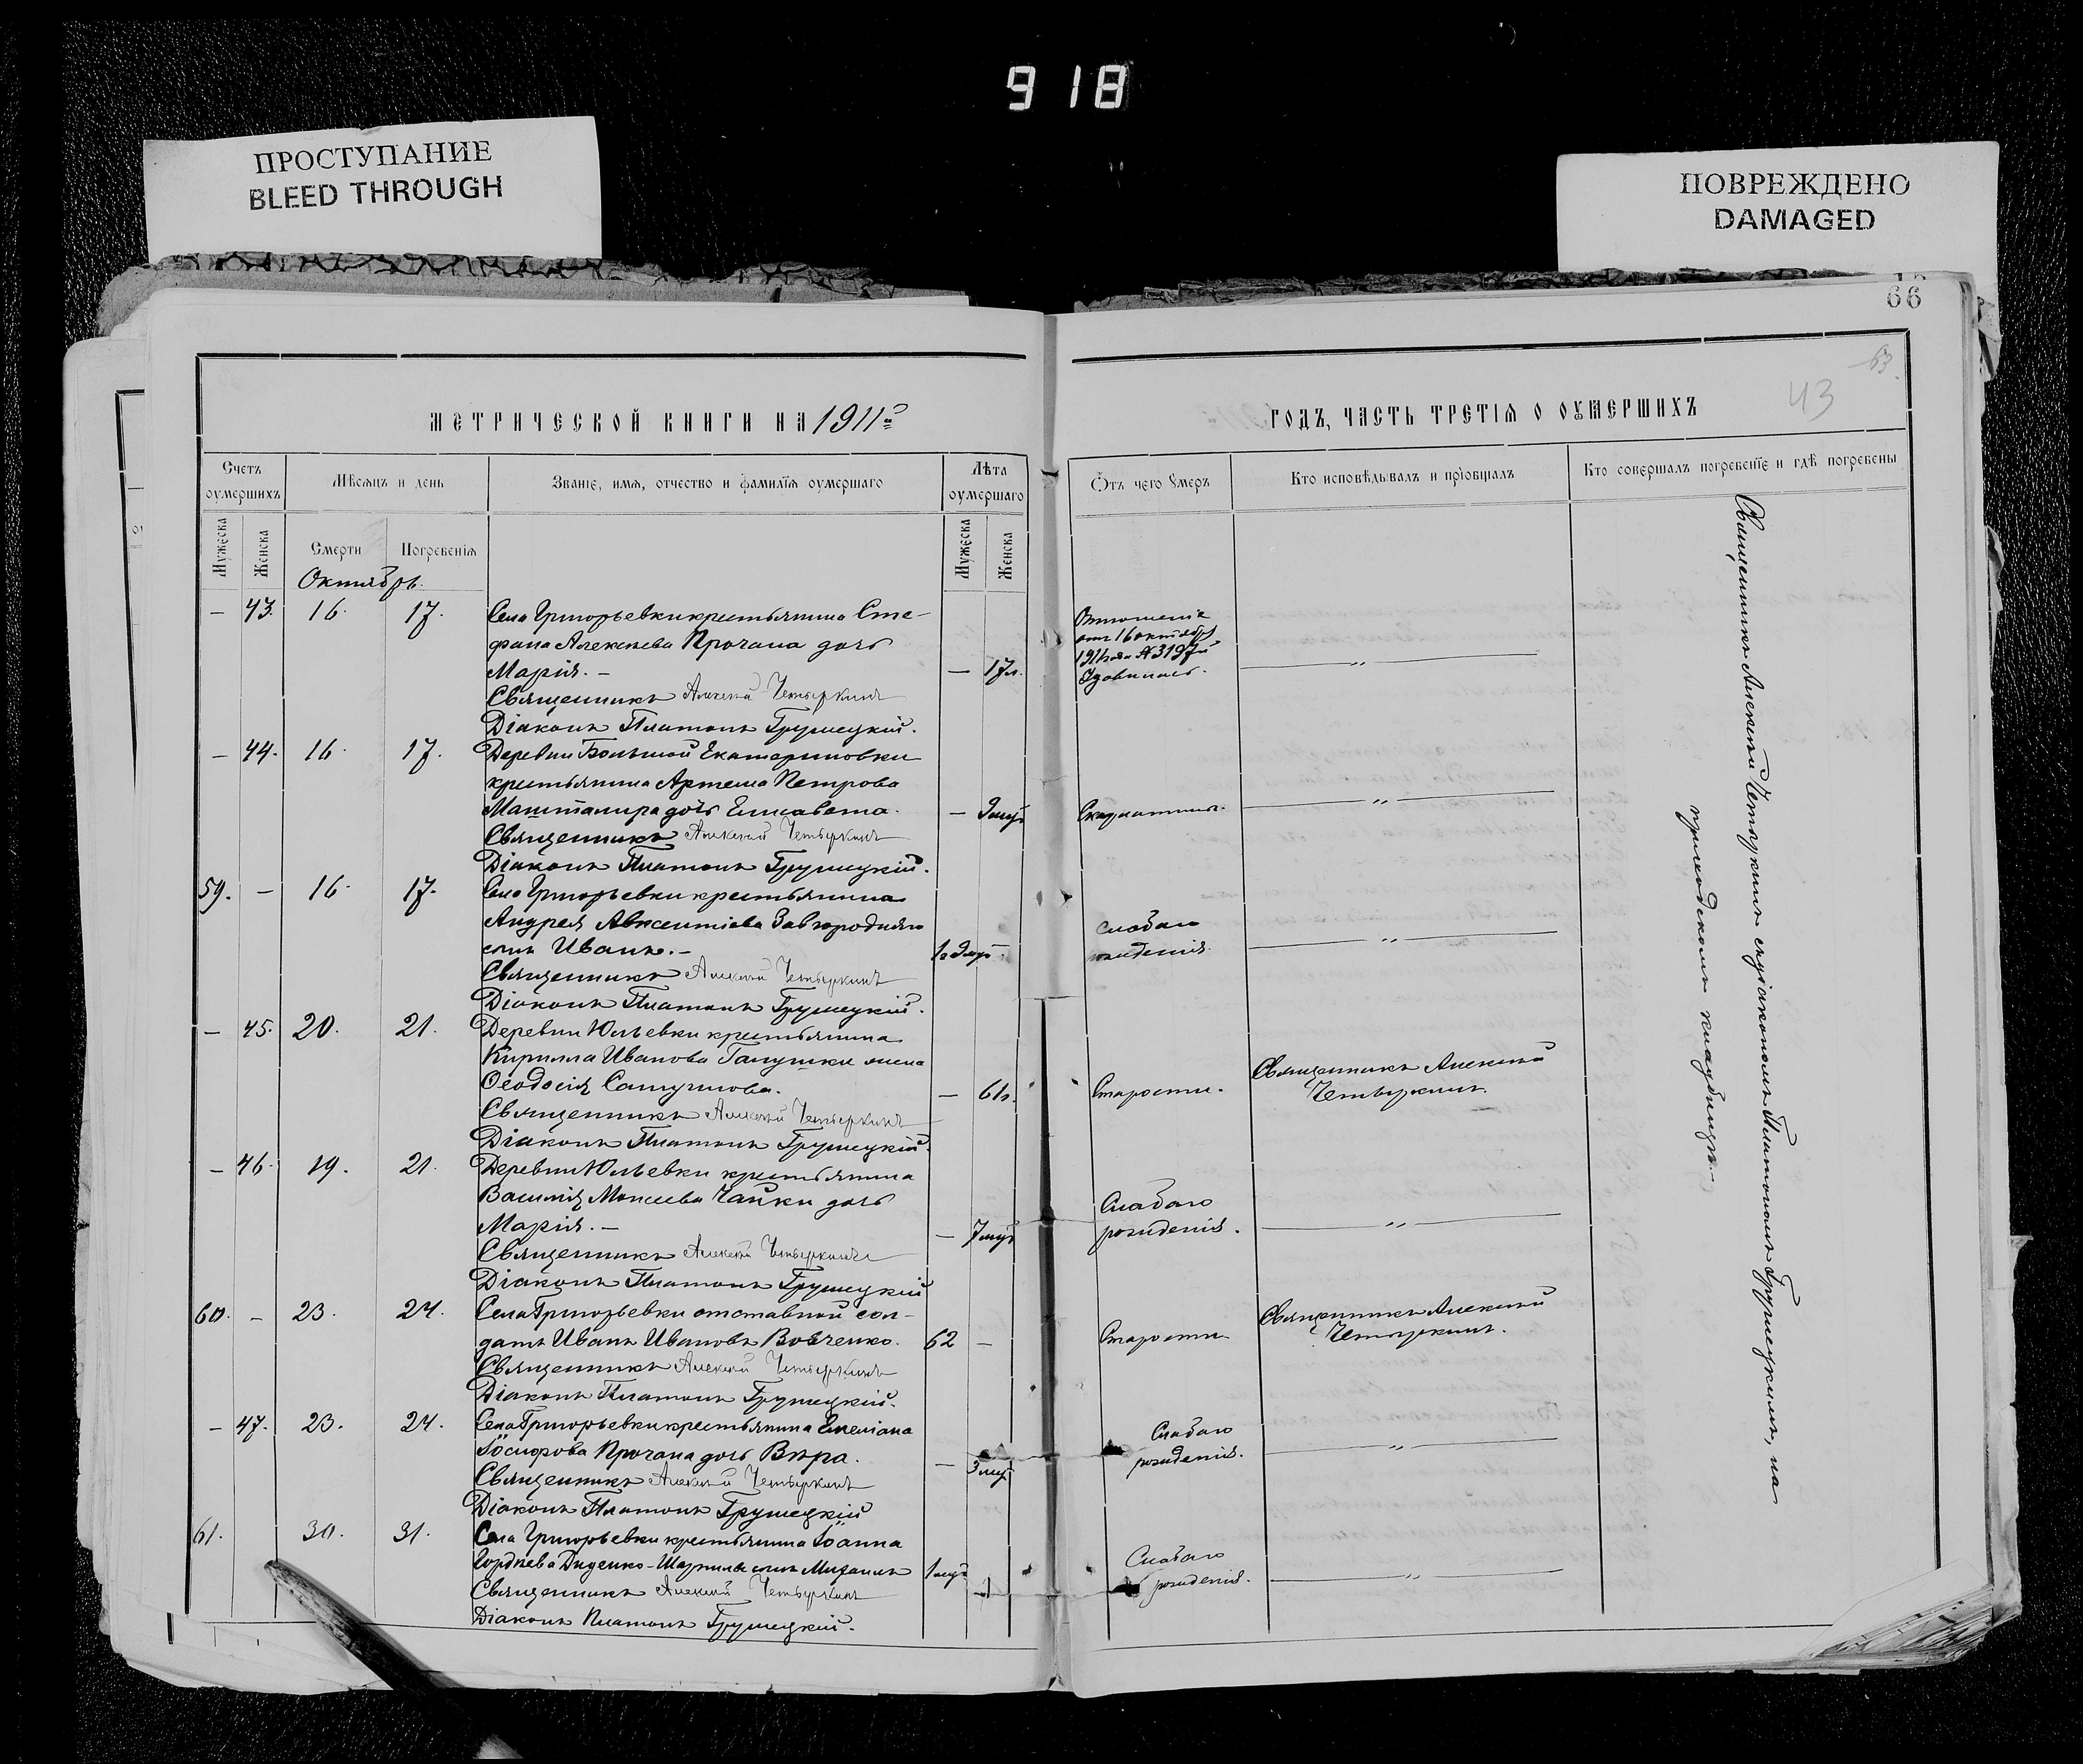 918
ПРОСТУПАНИЕ
BLEED THROUGH
ПОВРЕЖДЕНО
DAMAGED
66
63
43
МЕТРИЧЕСКОЙ КНИГИ НА 1911й
ГОДЪ, ЧАСТЬ ТРЕТІЯ О ОУМЕРШИХЪ
Счетъ оумершихъ
Мѣсяцъ и день
Званіе, имя, отчество и фамилія оумершаго
Лѣта оумершаго
Отъ чего умеръ
Кто исповѣдывалъ и пріобщалъ
Кто совершалъ погребеніе и гдѣ погребены
Мужеска
Женска
Смерти
Погребенія
Мужеска
Женска
Октябрь.
— 43. 16. 17. Села Григорьевки крестьянина Сте-
фана Алексѣева Прочана дочь
Марія. — — 17л.
Священникъ Алексѣй Четыркинъ
Діаконъ Платонъ Грушецкій.
Отношеніе
отъ 16 октября
1911 года № 3197й
Удавилась.
— „ —
— 44. 16. 17. Деревни Большой Екатериновки
крестьянина Артема Петрова
дочь Елисавета. — 9 мѣс
Священникъ Алексѣй Четыркинъ
Діаконъ Платонъ Грушецкій.
Скарлатины.
— „ —
59. — 16. 17. Села Григорьевки крестьянина
Андрея Авксентіева Завгородняго
сынъ Иванъ. —
Священникъ Алексѣй Четыркинъ
Діаконъ Платонъ Грушецкій.
слабаго
рожденія.
— „ —
— 45. 20. 21. Деревни Юльевки крестьянина
Кирилла Иванова Галушки жена
Ѳеодосія — 61л.
Священникъ Алексѣй Четыркинъ
Діаконъ Платонъ Грушецкій.
Старости.
Священникъ Алексѣй
Четыркинъ.
— 46. 19. 21. Деревни Юльевки крестьянина
Василія Моисеева Чайки дочь
Марія. — — 7 мѣс
Священникъ Алексѣй Четыркинъ
Діаконъ Платонъ Грушецкій
Слабаго
рожденія.
— „ —
60. — 23. 24. Села Григорьевки отставной сол-
датъ Иванъ Ивановъ Вовченко. 62 —
Священникъ Алексѣй Четыркинъ
Діаконъ Платонъ Грушецкій.
Старости.
Священникъ Алексѣй
Четыркинъ.
— 47. 23. 24. Села Григорьевки крестьянина Емеліана
Іосифова Прочана дочь Вѣра. — 3 мѣс
Священникъ Алексѣй Четыркинъ
Діаконъ Платонъ Грушецкій
Слабаго
рожденія.
— „ —
61. 30. 31. Села Григорьевки крестьянина Іоанна
Гордѣева сынъ Михаилъ 1 мѣс
Священникъ Алексѣй Четыркинъ
Діаконъ Платонъ Грушецкій.
Слабаго
рожденія.
— „ —
Священникъ Алексѣй Четыркинъ съ діакономъ Платономъ Грушецкимъ, на
приходскомъ кладбищѣ.